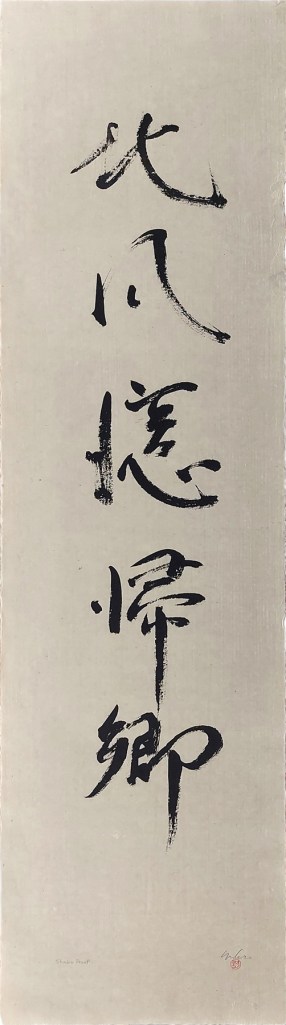 北風憶帰郷